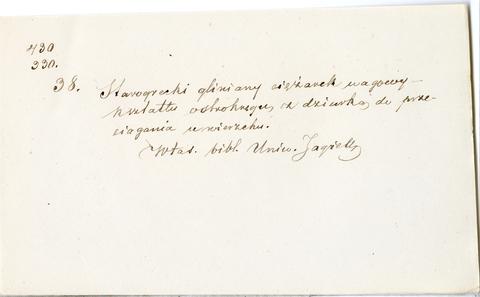 430
330.
38. Starogrecki gliniany ciężarek wagowy –
kształtu ostrokręgu, z dziurką do prze-
ciągania u wierzchu.
Włas. bibl. Uniw. Jagiell.